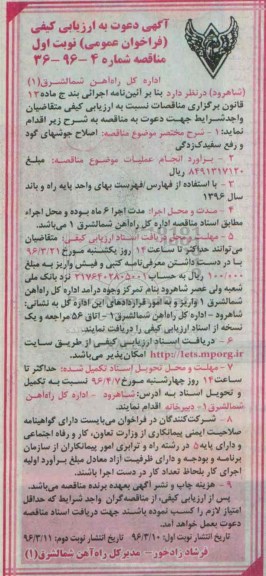 آگهی دعوت به ارزیابی کیفی
(فراخوان عمومی) نوبت اول
مناقصه شماره ۴-۹۶-۳۶
اداره کل راه‌آهن شمالشرق(۱)
(شاهرود) درنظر دارد بنا بر آئین‌نامه اجرائی بند ج ماده ۱۲
قانون برگزاری مناقصات نسبت به ارزیابی کیفی متقاضیان
واجدشرایط جهت دعوت به مناقصه به شرح زیر اقدام
نماید: ۱- شرح مختصر موضوع مناقصه: اصلاح جوشهای گود
و رفع سفیدک‌زدگی
۲- برآورد انجام عملیات موضوع مناقصه: مبلغ
۸۴۹۱۳۱۷۱۲۰ ریال
۳- با استفاده از فهارس فهرست بهای واحد پایه راه و باند
سال ۱۳۹۶
۴- مدت و محل اجرا: مدت اجرا ۶ ماه بوده و محل اجراء
مطابق اسناد مناقصه اداره کل راه‌آهن شمالشرق ۱ می‌باشد.
۵- مهلت و محل دریافت اسناد ارزیابی کیفی: متقاضیان
می‌توانند حداکثر تا ساعت ۱۴ روز یکشنبه مورخ ۹۶/۳/۲۱
با در دست داشتن معرفی‌نامه کتبی و فیش واریز به مبلغ
۱۰۰/۰۰۰ ریال به حساب ۲۱۷۶۴۰۲۸۰۵۰۰۱ نزد بانک ملی
شعبه ولی عصر شاهرود بنام تمرکز وجوه درآمد اداره کل راه‌آهن
شمالشرق ۱ واریز و به امور قراردادهای این اداره کل به نشانی:
شاهرود - اداره کل راه‌آهن شمالشرق ۱- اتاق ۵۶ مراجعه و یک
نسخه از اسناد ارزیابی کیفی را دریافت نمایند.
۶- دریافت اسناد ارزیابی کیفی از طریق سایت
http://iets.mporg.ir امکان‌پذیر می‌باشد.
۷- مهلت و محل تحویل اسناد تکمیل شده: حداکثر تا
ساعت ۱۴ روز چهارشنبه مورخ ۹۶/۴/۷ نسبت به تکمیل
و تحویل اسناد به آدرس: شاهرود - اداره کل راه‌آهن
شمالشرق ۱- دبیرخانه اقدام نمایند.
۸- شرکت‌کنندگان در فراخوان می‌بایست دارای گواهینامه
صلاحیت ایمنی پیمانکاری از وزارت تعاون، کار و رفاه اجتماعی
و دارای پایه ۵ در رشته راه و ترابری امور پیمانکاران از سازمان
برنامه و بودجه و دارای ظرفیت آزاد معادل مبلغ برآورد اولیه
اجرای کار بلحاظ تعداد کار در دست اجرا باشند.
۹- هزینه چاپ و نشر آگهی بعهده برنده مناقصه می‌باشد.
پس از ارزیابی کیفی، از مناقصه‌گران واجد شرایط که حداقل
امتیاز لازم را کسب نموده باشند جهت دریافت اسناد مناقصه
دعوت بعمل خواهد آمد.
تاریخ انتشار نوبت اول: ۹۶/۳/۱۰ تاریخ انتشار نوبت دوم: ۹۶/۳/۱۱
فرشاد رادخور - مدیرکل راه‌آهن شمالشرق(۱)